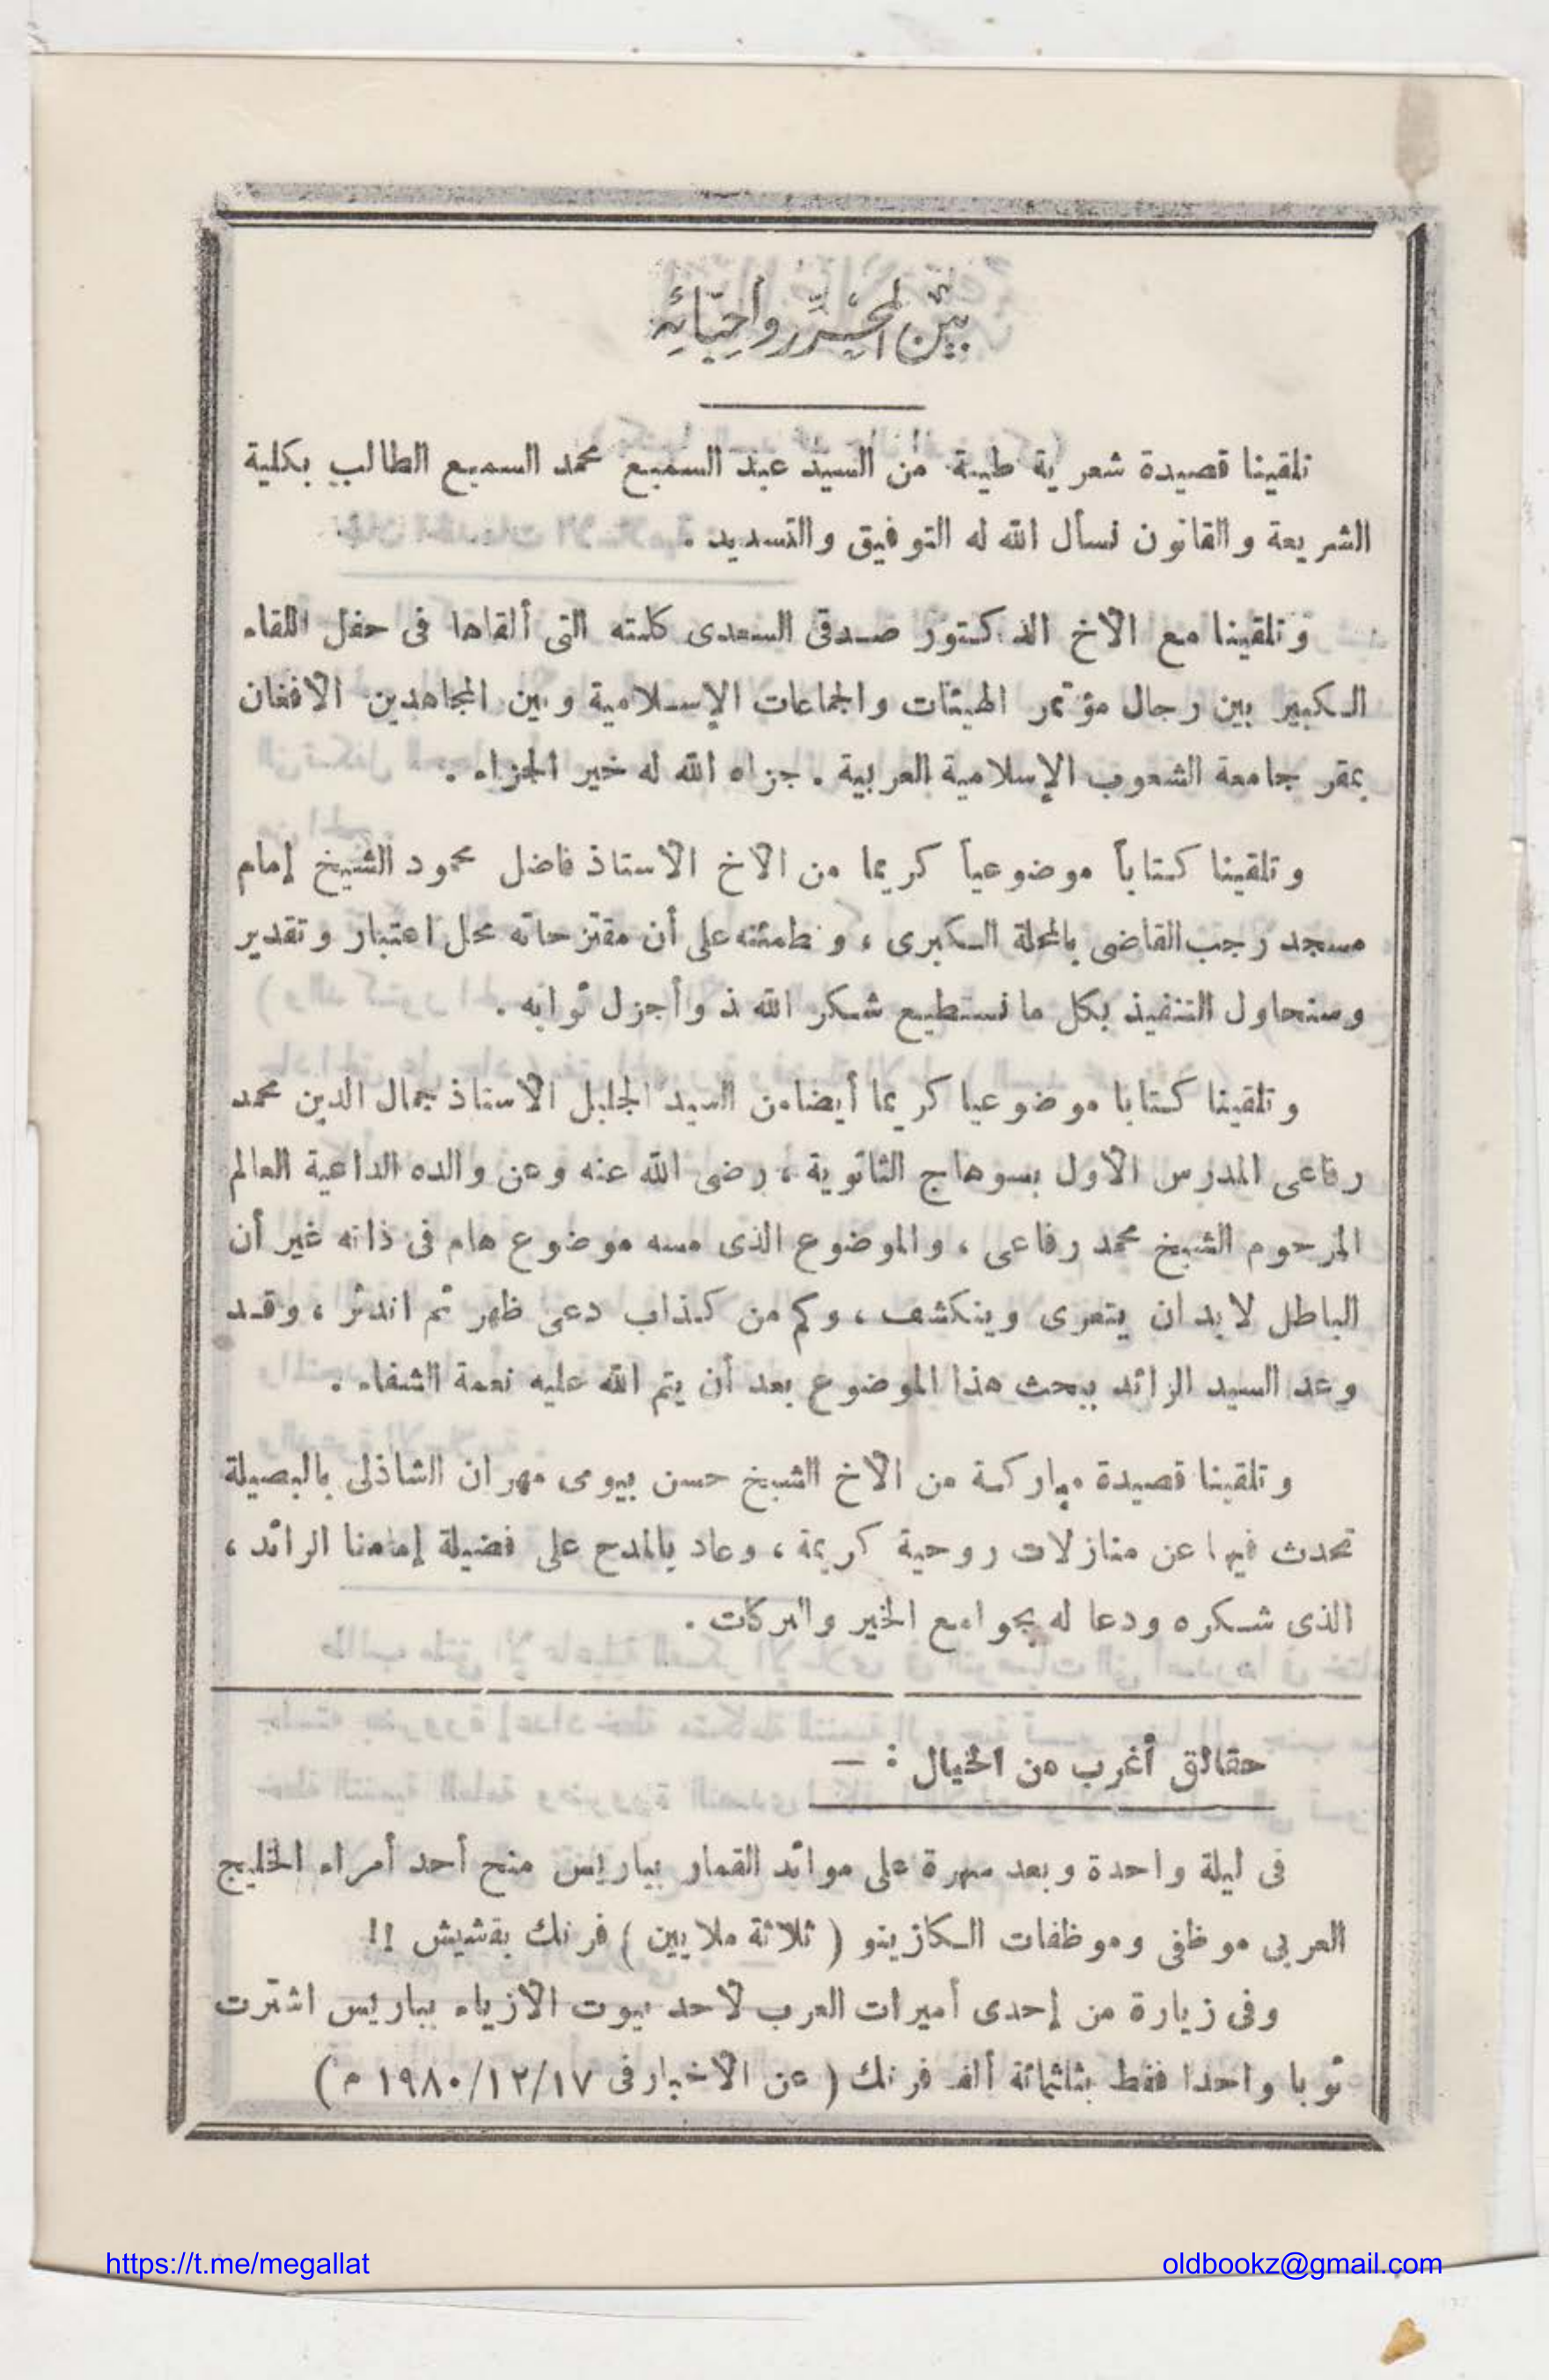 بين المحرر وأحبائه
تلقينا قصيدة شعرية طيبة من السيد عبد السميع محمد السميع الطالب بكلية
الشريعة والقانون نسأل الله له التوفيق والتسديد .
وتلقينا مع الأخ الدكتور صدقى السعدى كلمته التى ألقاها فى حفل اللقاء
الكبير بين رجال مؤتمر الهيئات والجماعات الإسلامية وبين المجاهدين الأفغان
بمقر جامعة الشعوب الإسلامية العربية . جزاه الله له خير الجزاء .
وتلقينا كتاباً موضوعياً كريما من الأخ الأستاذ فاضل محمود الشيخ إمام
مسجد رجب القاضى بالمحلة الكبرى ، ونطمئنه على أن مقترحاته محل اعتبار وتقدير
وسنحاول التنفيذ بكل ما نستطيع شكر الله ذ وأجزل ثوابه .
وتلقينا كتابا موضوعيا كريما أيضا من السيد الجليل الأستاذ جمال الدين محمد
رفاعى المدرس الأول بسوهاج الثانوية ، رضى الله عنه وعن والده الداعية العالم
المرحوم الشيخ محمد رفاعى ، والموضوع الذى مسه موضوع هام فى ذاته غير أن
الباطل لابد ان يتعرى وينكشف ، وكم من كذاب دعى ظهر ثم اندثر ، وقد
وعد السيد الرائد ببحث هذا الموضوع بعد أن يتم الله عليه نعمة الشفاء .
وتلقينا قصيدة مباركة من الأخ الشيخ حسن بيومى مهران الشاذلى بالبصيلة
تحدث فيها عن منازلات روحية كريمة ، وعاد بالمدح على فضيلة إمامنا الرائد ،
الذى شكره ودعا له بجوامع الخير والبركات .
حقائق أغرب من الخيال : —
فى ليلة واحدة وبعد سهرة على موائد القمار بباريس منح أحد أمراء الخليج
العربى موظفى وموظفات الكازينو ( ثلاثة ملايين ) فرنك بقشيش !!
وفى زيارة من إحدى أميرات العرب لأحد بيوت الأزياء بباريس اشترت
ثوبا واحدا فقط بثلثمائة ألف فرنك ( عن الأخبار فى ١٩٨٠/١٢/١٧ م )
https://t.me/megallat
oldbookz@gmail.com